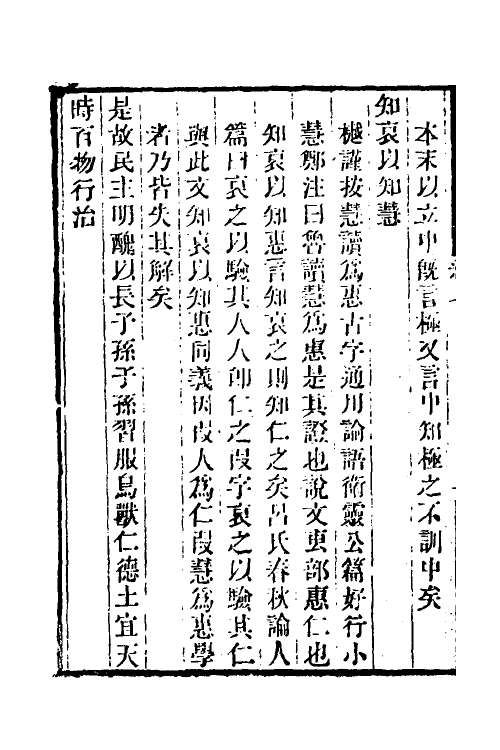 本末以立中既言極又言中知極之不訓中矣
知哀以知慧
樾謹按慧讀爲惠古字通用論語衛靈公篇好行小
慧鄭注曰魯讀慧爲惠是其證也說文叀部惠仁也
知哀以知惠言知哀之則知仁之矣呂氏春秋論人
篇曰哀之以驗其人人卽仁之叚字哀之以驗其仁
與此文知哀以知惠同義因叚人爲仁叚慧爲惠學
者乃皆失其解矣
是故民主明醜以長子孫子孫習服鳥獸仁德土宜天
時百物行治